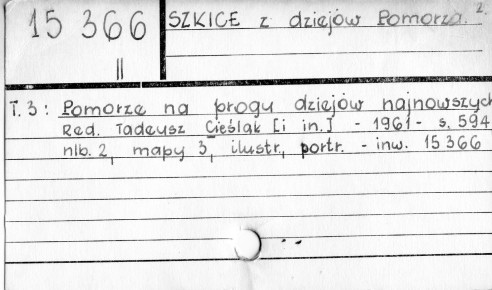 2.
15 366
II
SZKICE z dziejów Pomorza.
T. 3 : Pomorze na progu dziejów najnowszych
Red. Tadeusz Cieślak [i in.] - 1961 - s. 594
nlb. 2, mapy 3, ilustr., portr. - inw. 15 366